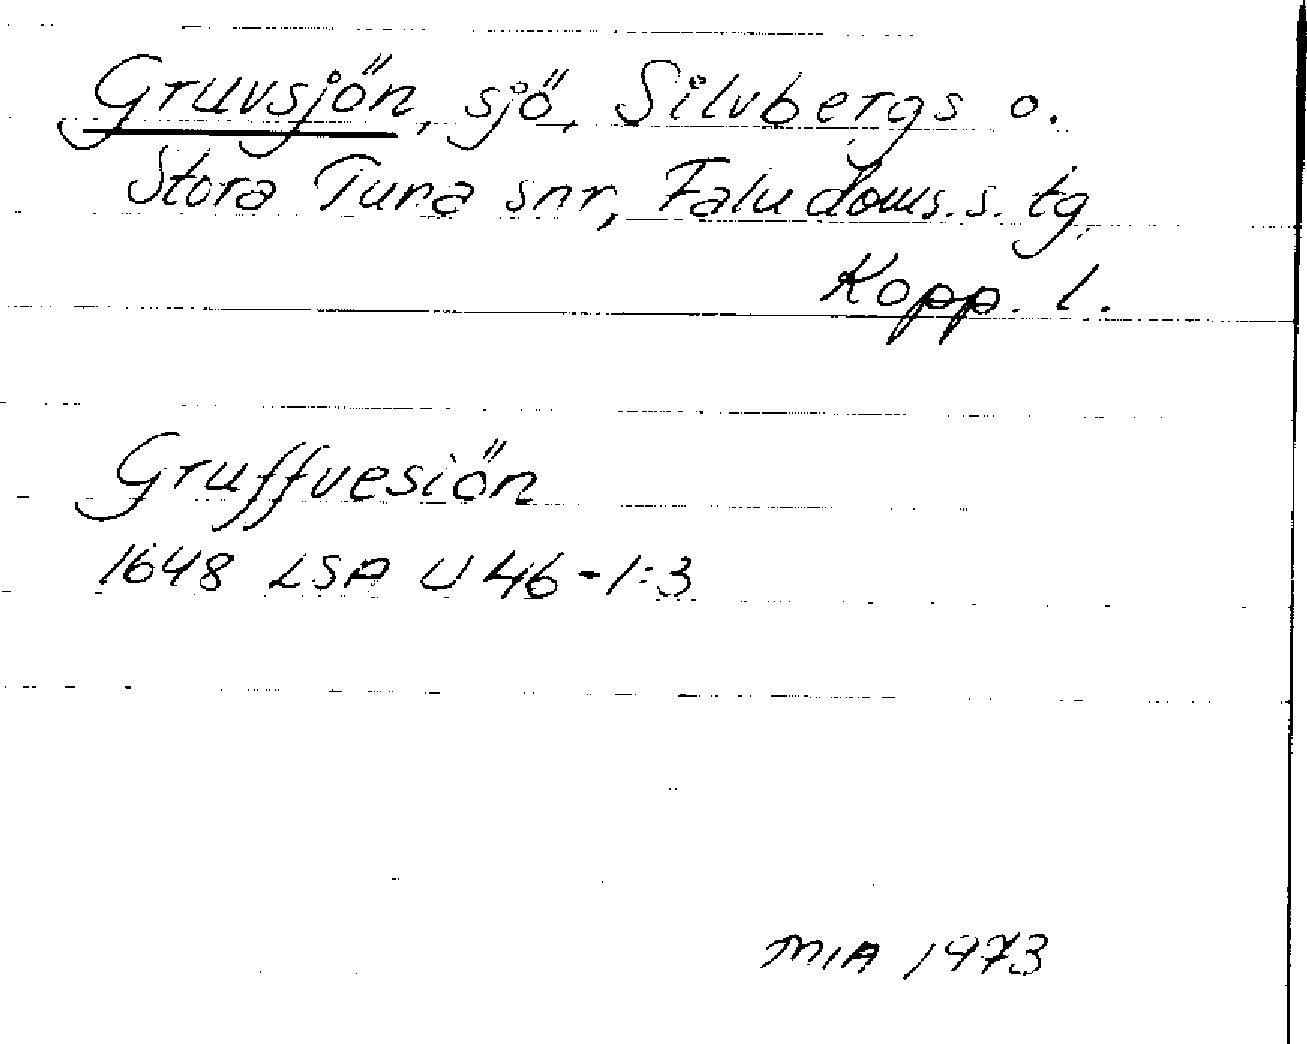 Gruvsjön, sjö, Silvbergs o.
Stora Tuna snr, Falu doms. s. tg,
Kopp. l.
Gruffvesiön
1648 LSA U 46-1:3
MIA 1973